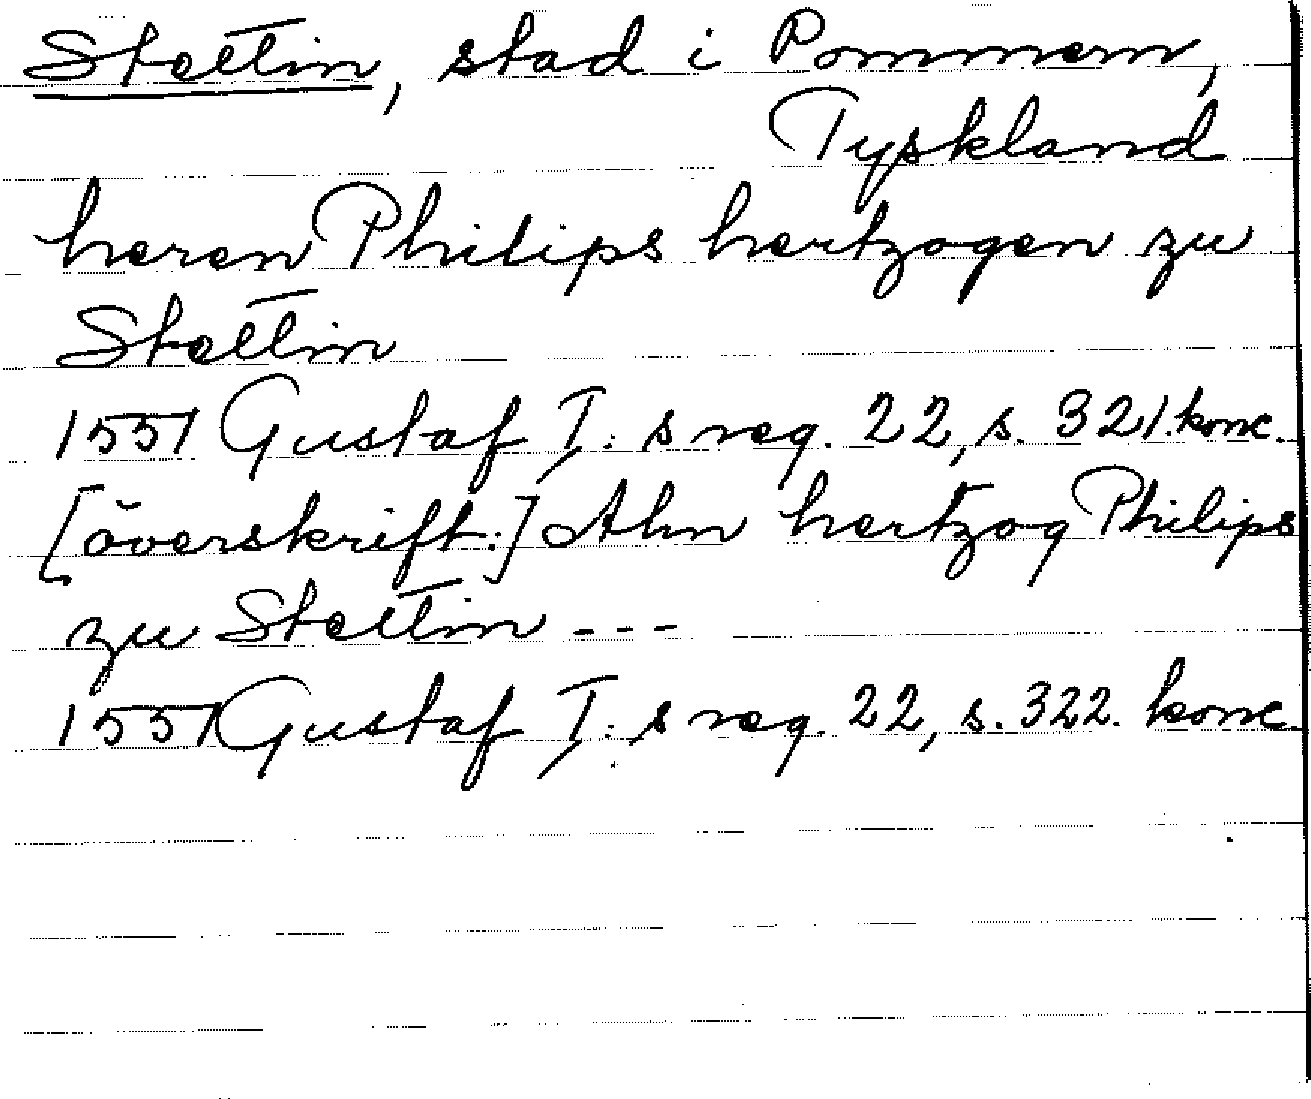 Stettin, stad i Pommern,
Tyskland
heren Philips hertzogen zu
Stettin
1551 Gustaf I:s reg. 22, s. 321. konc.
[överskrift:] Ahn hertzog Philips
zu Stettin ---
1551 Gustaf I:s reg. 22, s. 322. konc.